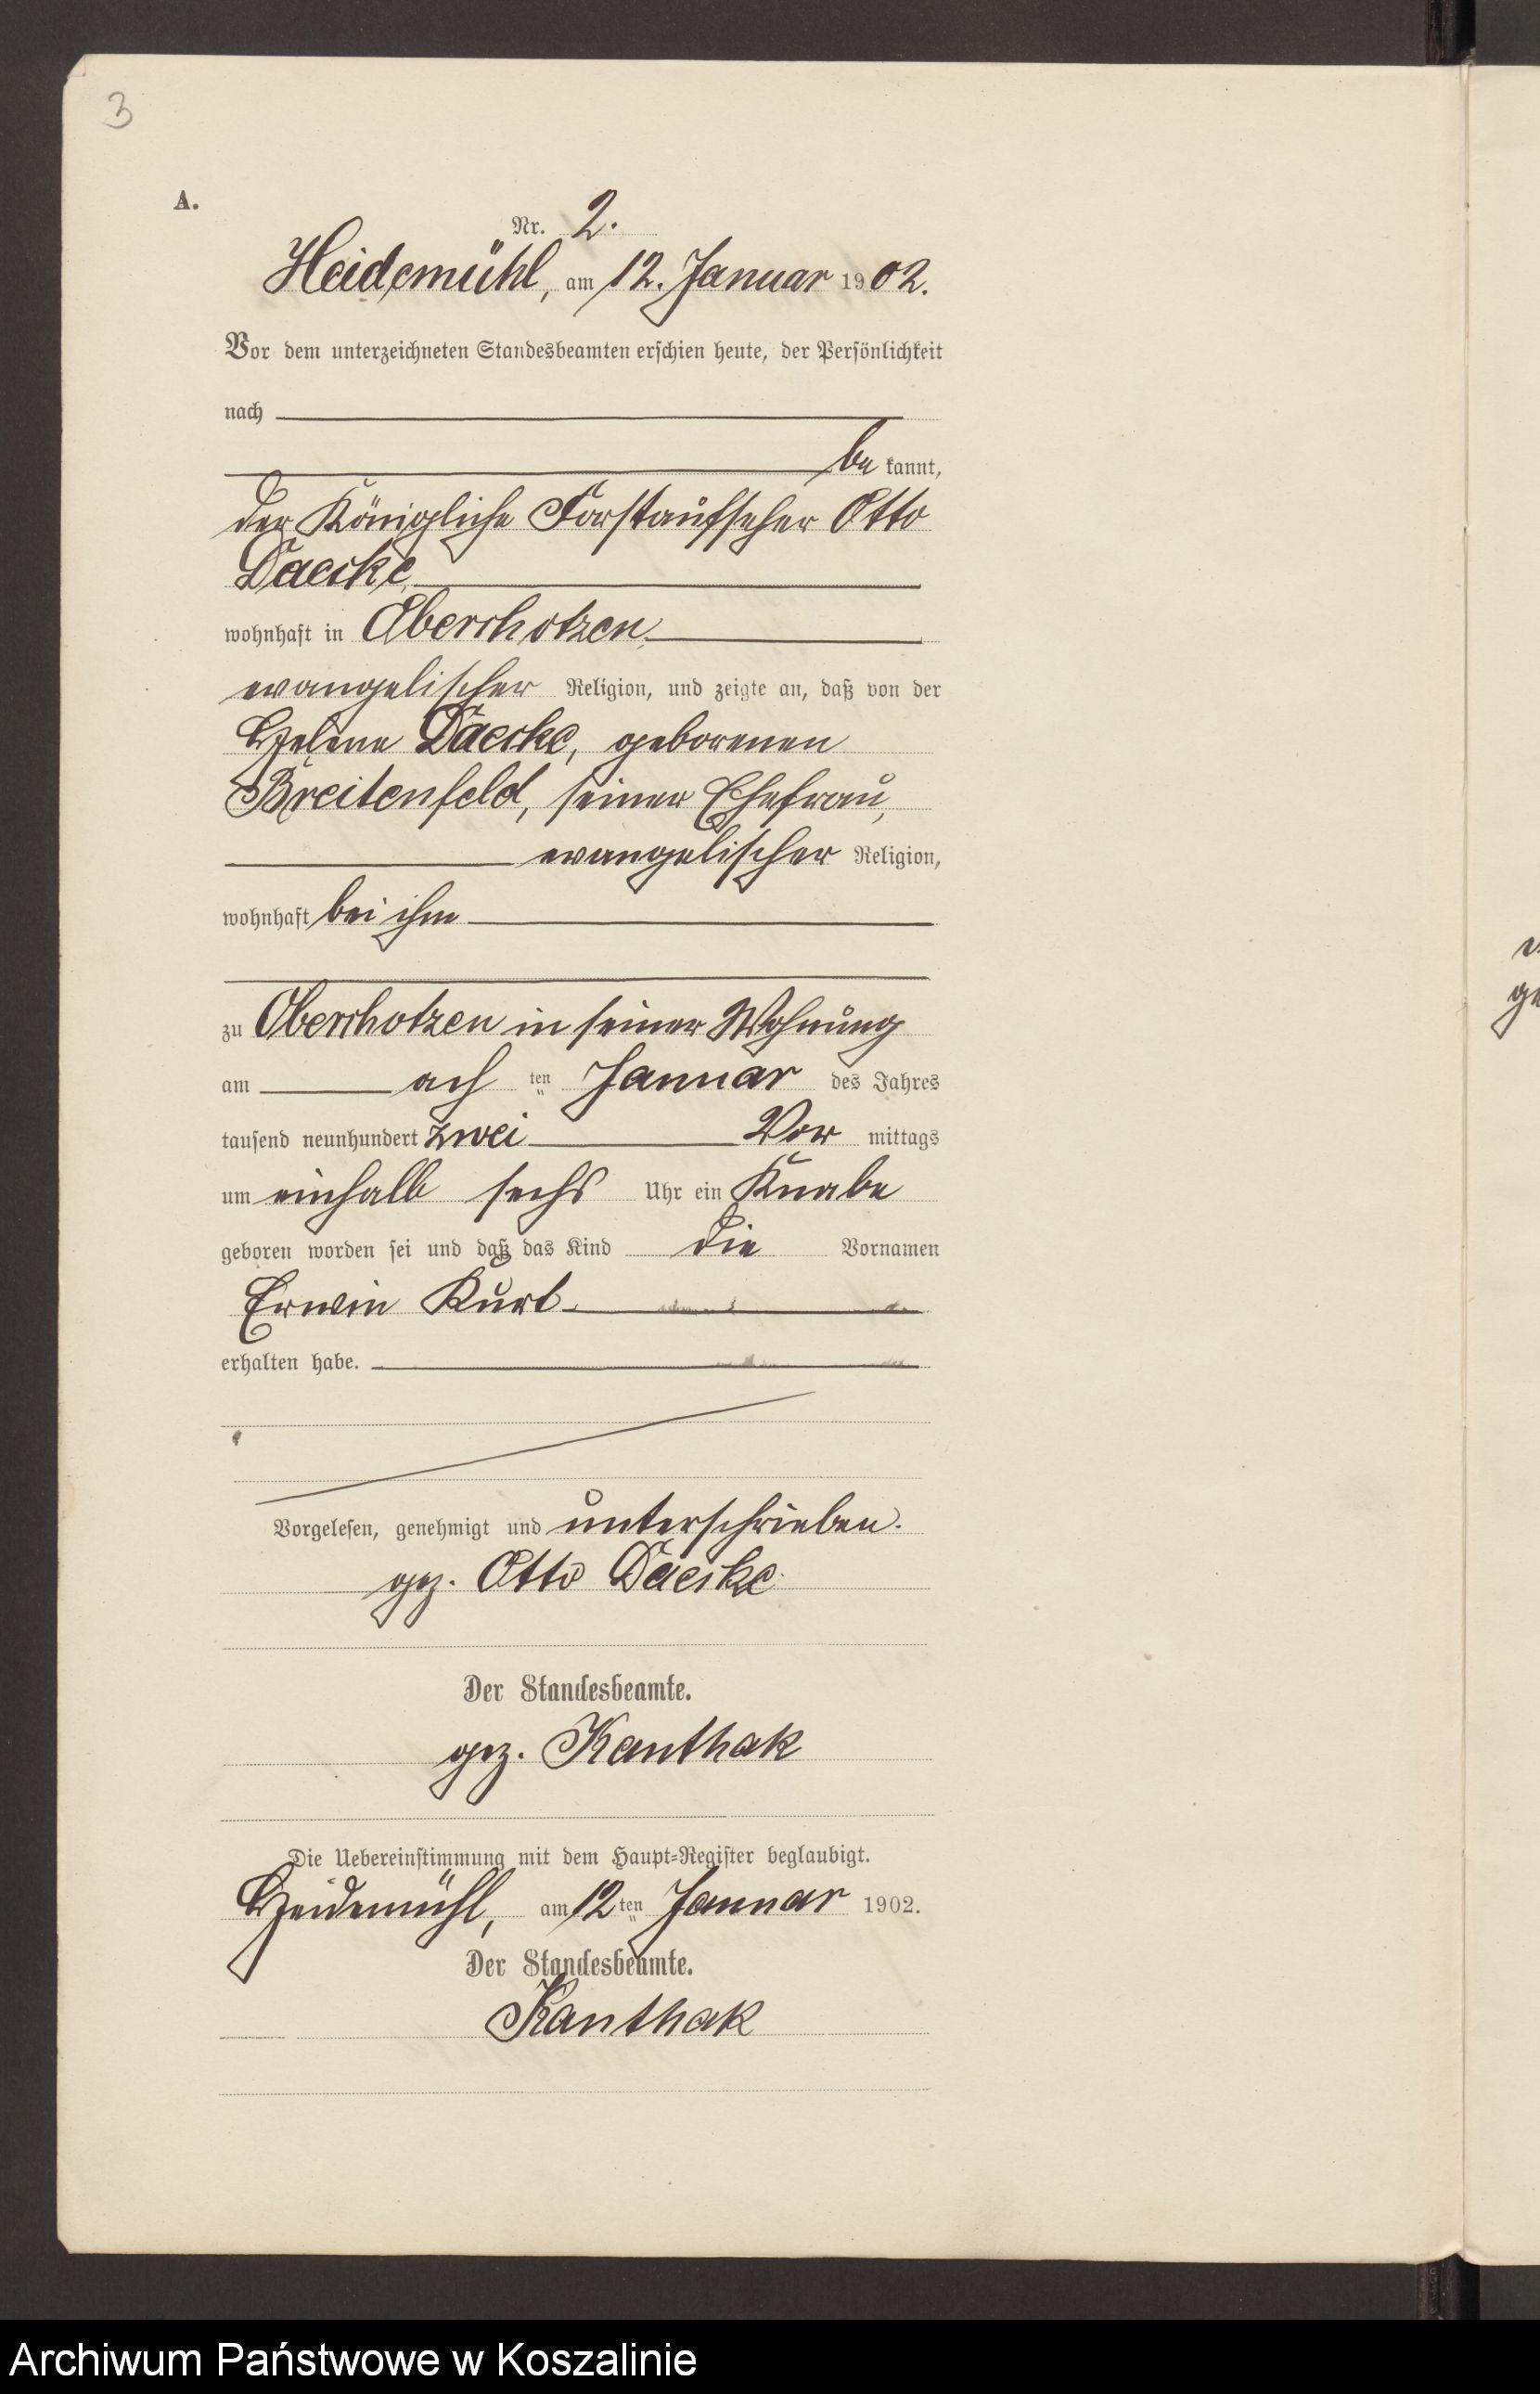 3
A.
Nr. 2.
Heidemühl, am 12. Januar 1902.
Vor dem unterzeichneten Standesbeamten erschien heute, der Persönlichkeit
nach
be kannt,
der Königliche Forstaufseher Otto
Daeske,
wohnhaft in Oberschotzen,
evangelischer Religion, und zeigte an, daß von der
Helene Daeske, geborenen
Breitenfeld, seiner Ehefrau,
evangelischer Religion,
wohnhaft bei ihm
zu Oberschotzen in seiner Wohnung
am ach ten Januar des Jahres
tausend neunhundert zwei Vor mittags
um einhalb sechs Uhr ein Knabe
geboren worden sei und daß das Kind die Vornamen
Erwin Kurt
erhalten habe.
Vorgelesen, genehmigt und unterschrieben.
gez. Otto Daeske
Der Standesbeamte.
gez. Kanthak
Die Uebereinstimmung mit dem Haupt-Register beglaubigt.
Heidemühl, am 12 ten Januar 1902.
Der Standesbeamte.
Kanthak
Archiwum Państwowe w Koszalinie